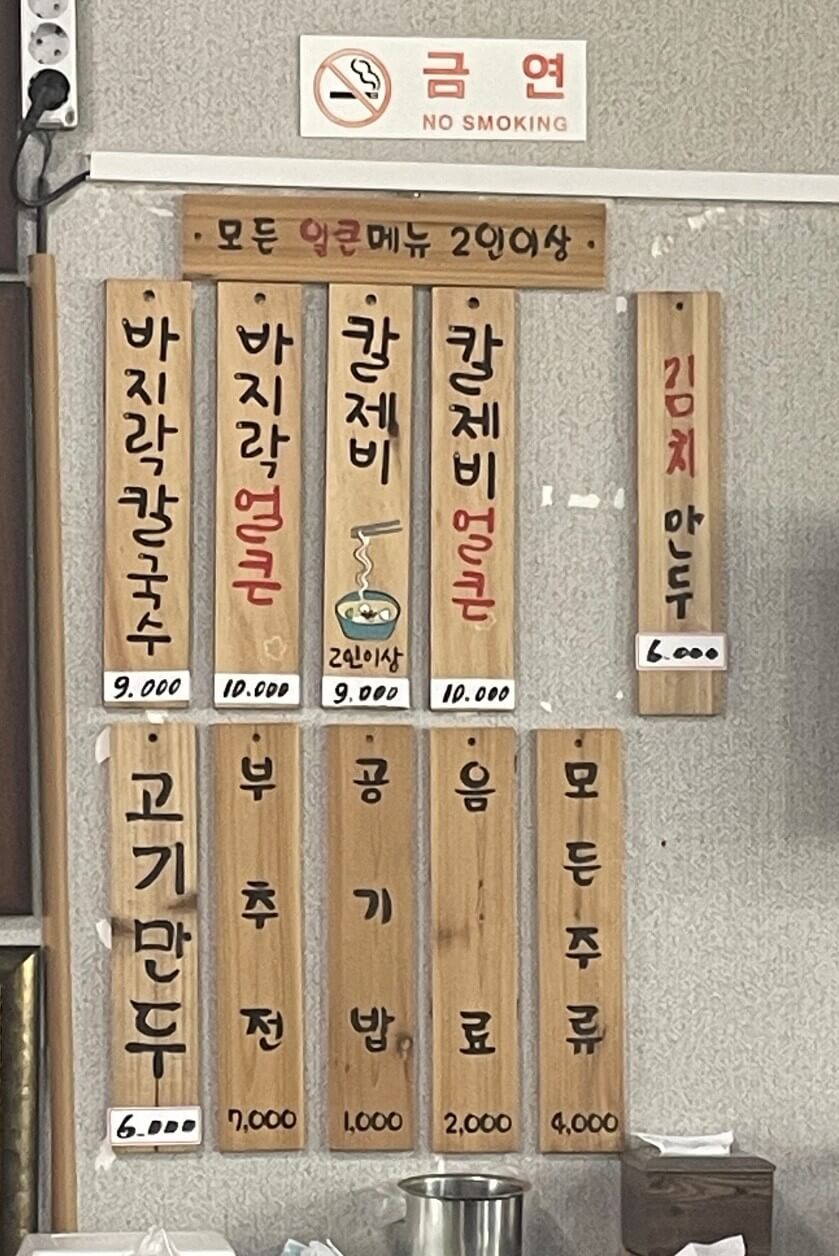 금 연
NO SMOKING
· 모든 얼큰메뉴 2인이상 ·
바지락칼국수
9.000
바지락얼큰
10.000
칼제비
2인이상
9.000
칼제비얼큰
10.000
김치만두
6.000
고기만두
6.000
부추전
7,000
공기밥
1,000
음료
2,000
모든주류
4,000